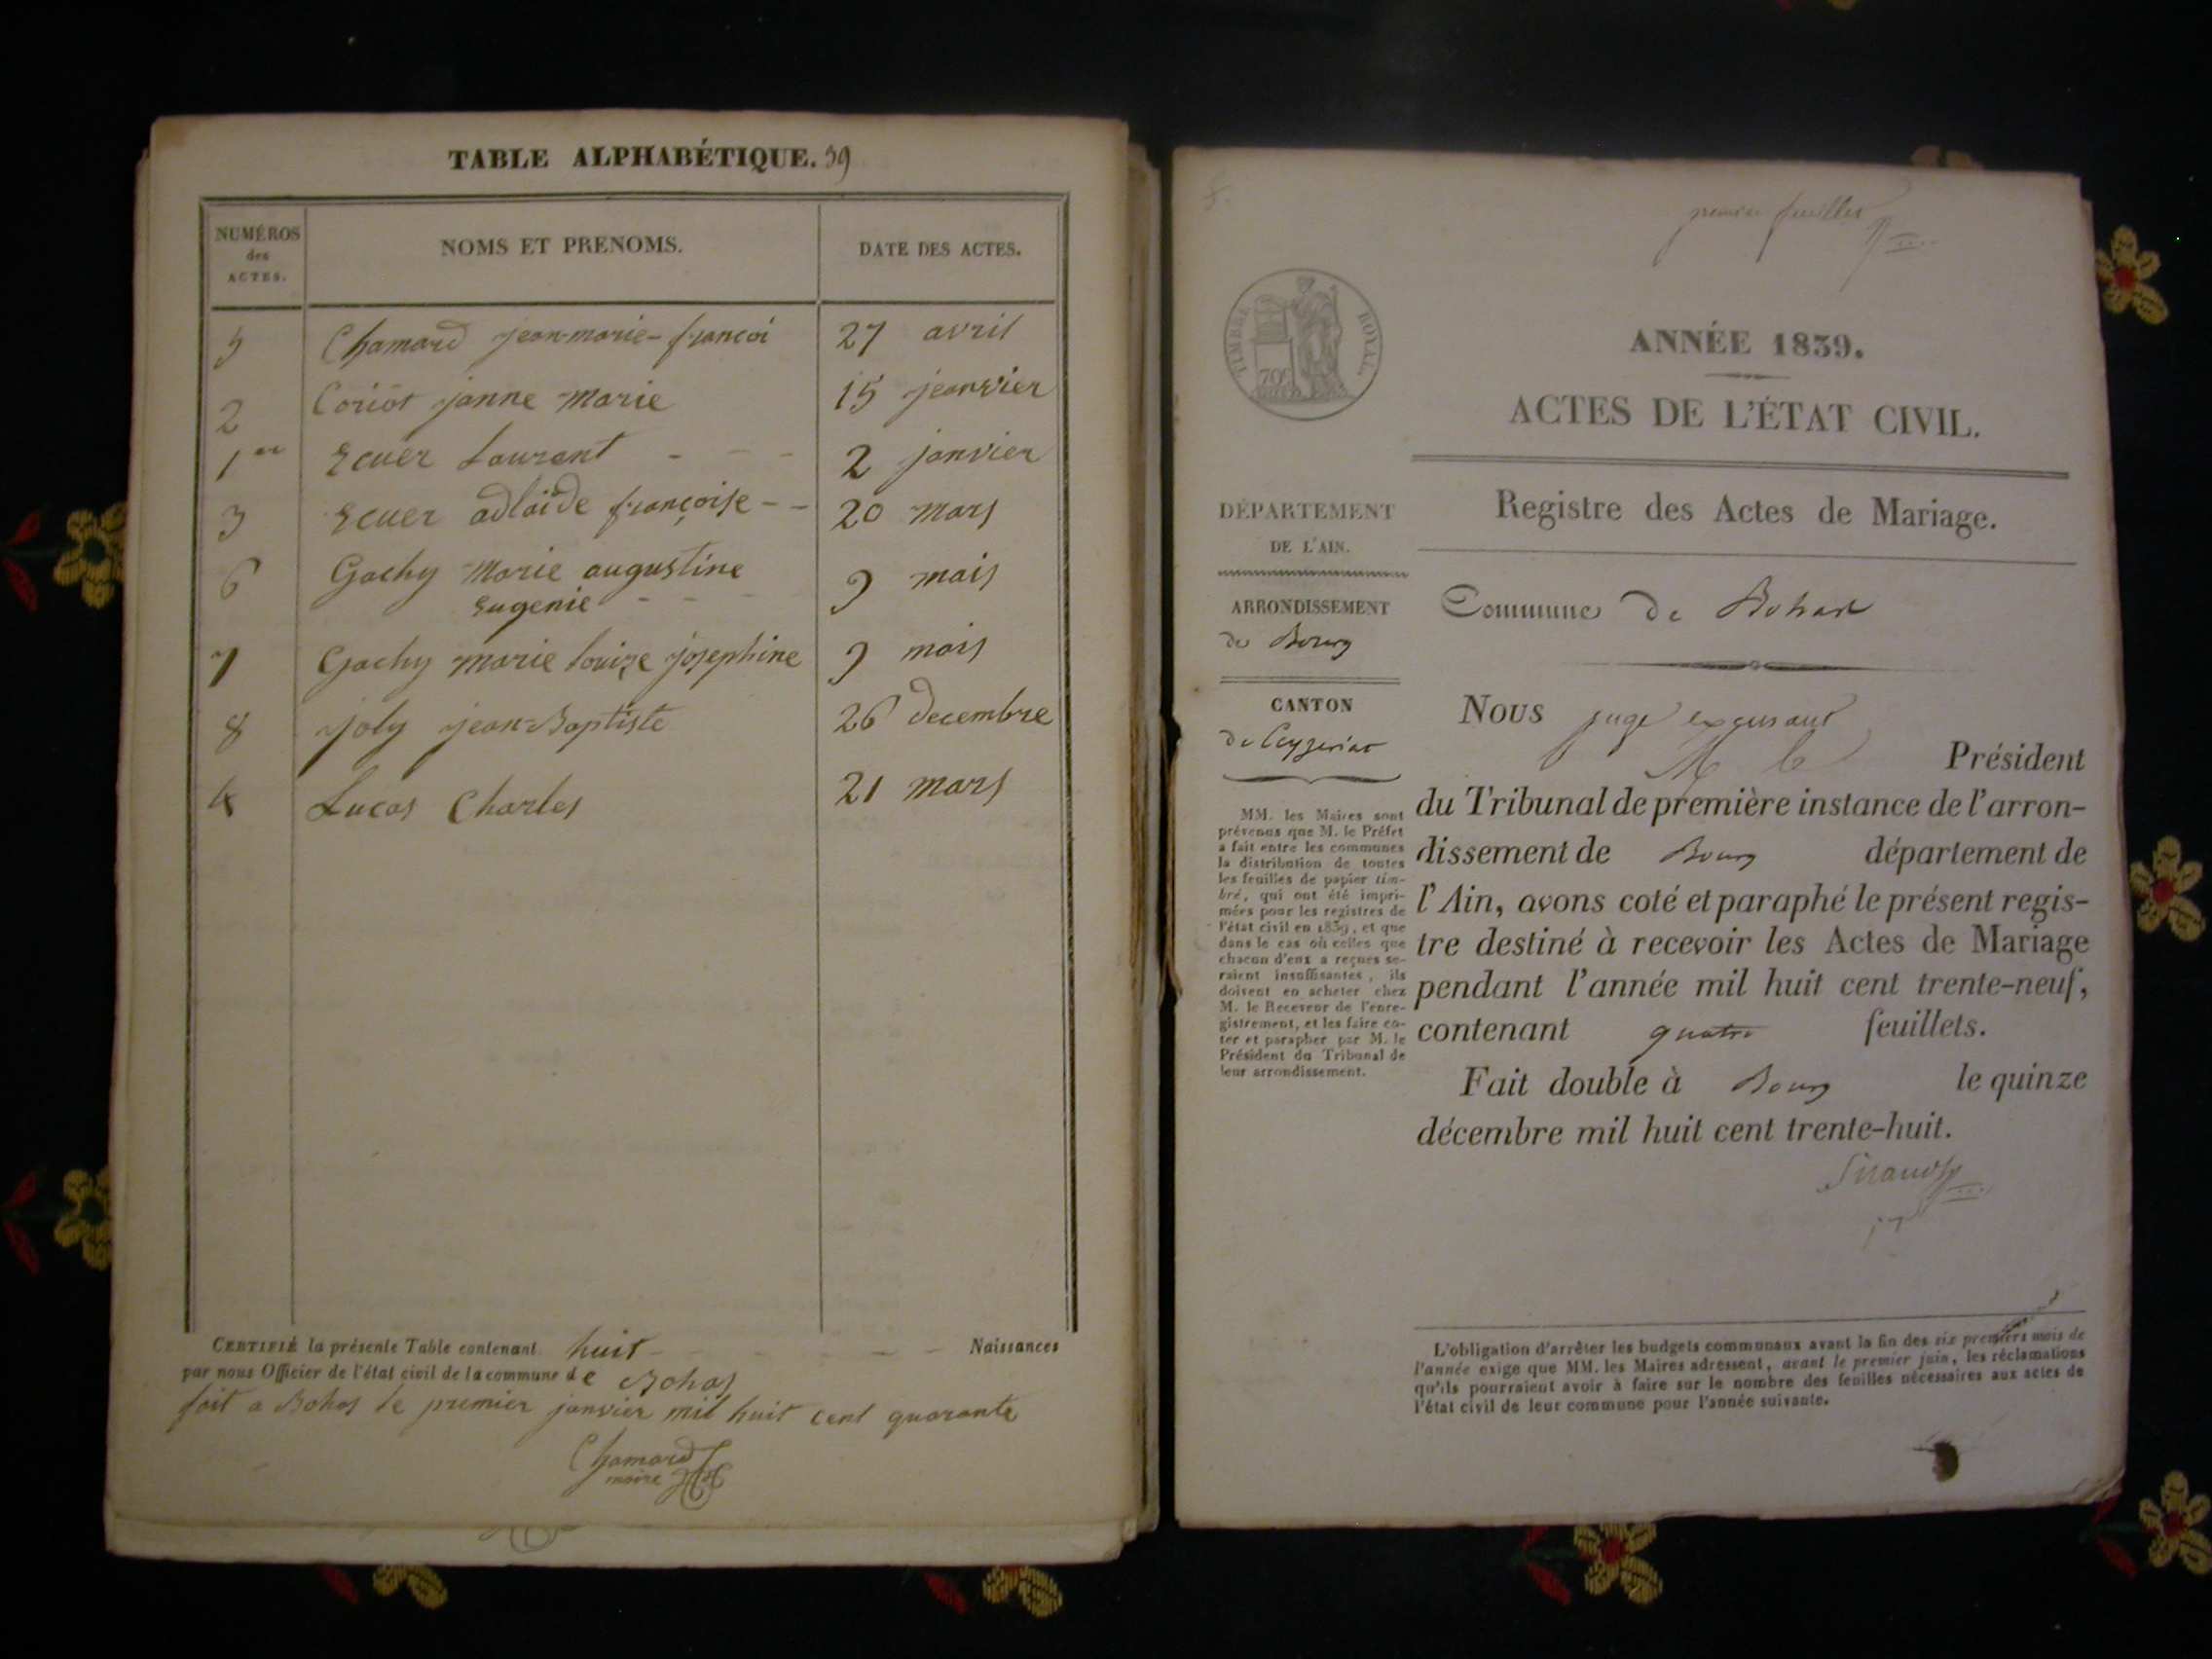 TABLE ALPHABÉTIQUE. 39
NUMÉROS
des
ACTES.
NOMS ET PRENOMS.
DATE DES ACTES.
5 Chamard jean-marie-françoi 27 avril
2 Coriot janne Marie 15 jeanvier
1er Ecuer Laurent - - - 2 janvier
3 Ecuer adlaïde françoise - - 20 mars
6 Gachy Marie augustine 9 mais
Eugenie - - -
7 Gachy marie louise josephine 9 mais
8 joly jean-Baptiste 26 decembre
4 Lucas Charles 21 mars
CERTIFIÉ la présente Table contenant huit - - - - - Naissances
par nous Officier de l'état civil de la commune de Bohas
fait a Bohas le premier janvier mil huit cent quarante
Chamard
maire
premier feuillet
TIMBRE ROYAL
70c
ANNÉE 1839.
ACTES DE L'ÉTAT CIVIL.
Registre des Actes de Mariage.
DÉPARTEMENT
DE L'AIN.
ARRONDISSEMENT
de Bourg
CANTON
de Ceyzeriat
MM. les Maires sont
prévenus que M. le Préfet
a fait entre les communes
la distribution de toutes
les feuilles de papier tim-
bré, qui ont été impri-
mées pour les registres de
l'état civil en 1839, et que
dans le cas où celles que
chacun d'eux a reçues se-
raient insuffisantes, ils
doivent en acheter chez
M. le Receveur de l'enre-
gistrement, et les faire co-
ter et parapher par M. le
Président du Tribunal de
leur arrondissement.
Commune de Bohas
Nous juge
Président
du Tribunal de première instance de l'arron-
dissement de Bourg département de
l'Ain, avons coté et paraphé le présent regis-
tre destiné à recevoir les Actes de Mariage
pendant l'année mil huit cent trente-neuf,
contenant quatre feuillets.
Fait double à Bourg le quinze
décembre mil huit cent trente-huit.
L'obligation d'arrêter les budgets communaux avant la fin des six premiers mois de
l'année exige que MM. les Maires adressent, avant le premier juin, les réclamations
qu'ils pourraient avoir à faire sur le nombre des feuilles nécessaires aux actes de
l'état civil de leur commune pour l'année suivante.